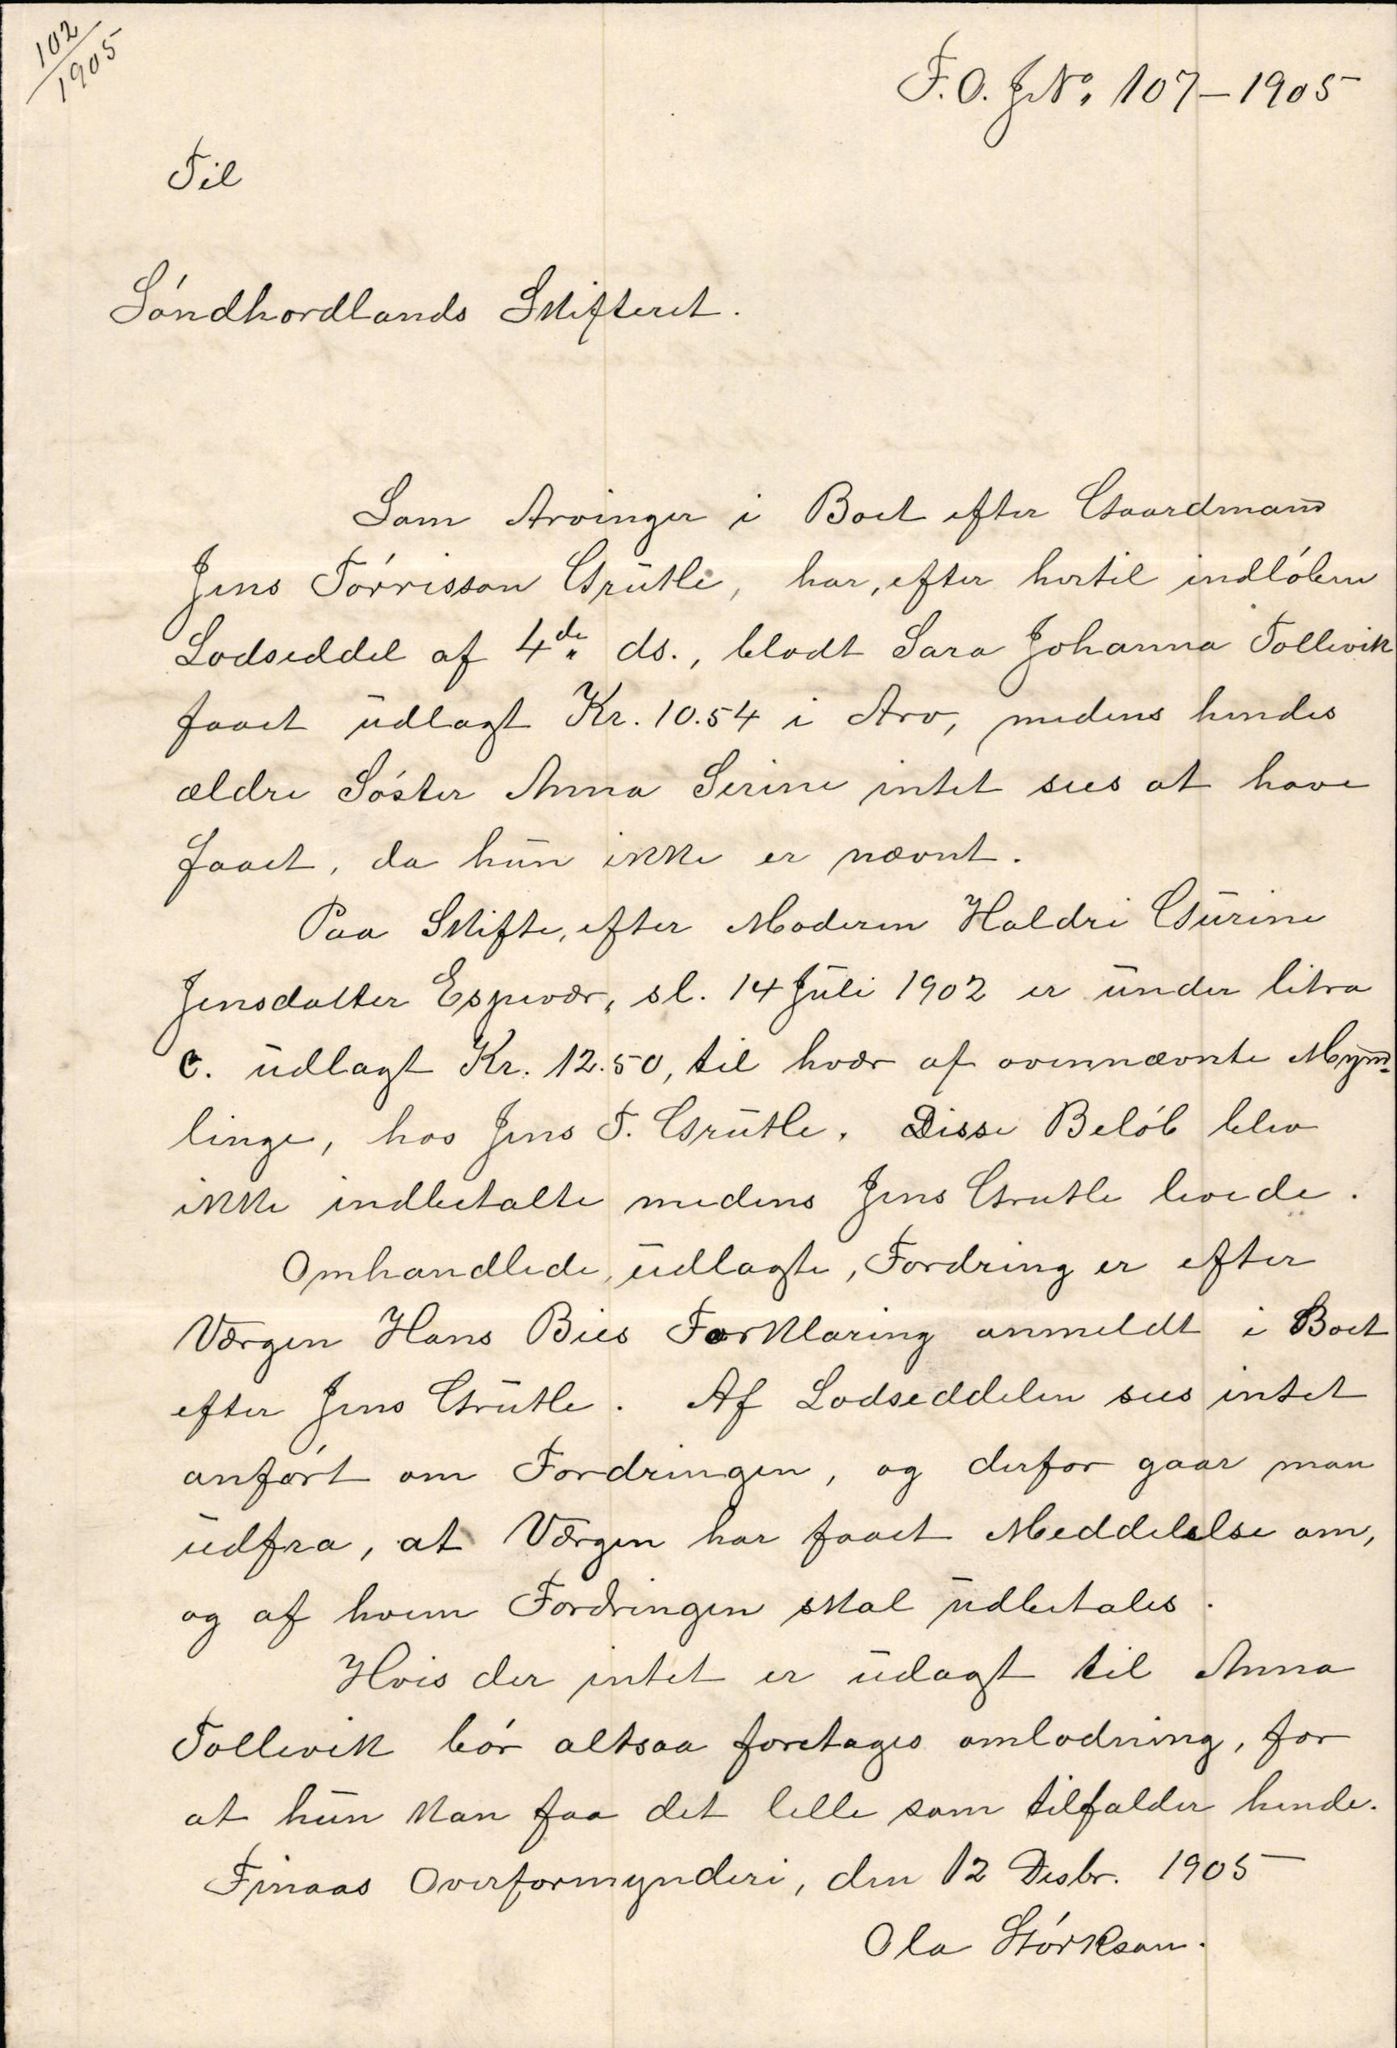 102
1905
F. O. J No. 107 – 1905
Til
Söndhordlands Skifteret.
Som Arvinger i Boet efter Gaardmand
Jens Tørrisson Grutle, har, efter hertil indløben
Lodseddel af 4de ds., blodt Sara Johanna Tollevik
faaet udlagt Kr. 10.54 i Arv, medens hendes
ældre Søster Anna Serine intet sees at have
faaet, da hun ikke er nævnt.
Paa Skifte, efter Moderen Haldri Gurine
Jensdatter Espevær, sl. 14 Juli 1902 er under litra
c. udlagt Kr. 12.50, til hvær af ovennævnte Mynd-
linge, hos Jens T. Grutle. Disse Beløb blev
ikke indbetalte medens Jens Grutle levede.
Omhandlede, udlagte, Fordring er efter
Værgen Hans Bies Forklaring anmeldt i Boet
efter Jens Grutle. Af Lodseddelen sees intet
anført om Fordringen, og derfor gaar man
udfra, at Værgen har faaet Meddelelse om,
og af hvem Fordringen skal udbetales.
Hvis der intet er udagt til Anna
Tollevik bør altsaa foretages omlodning, for
at hun kan faa det lille som tilfalder hende.
Finaas Overformynderi, den 12 Desbr. 1905
Ola Størkson.